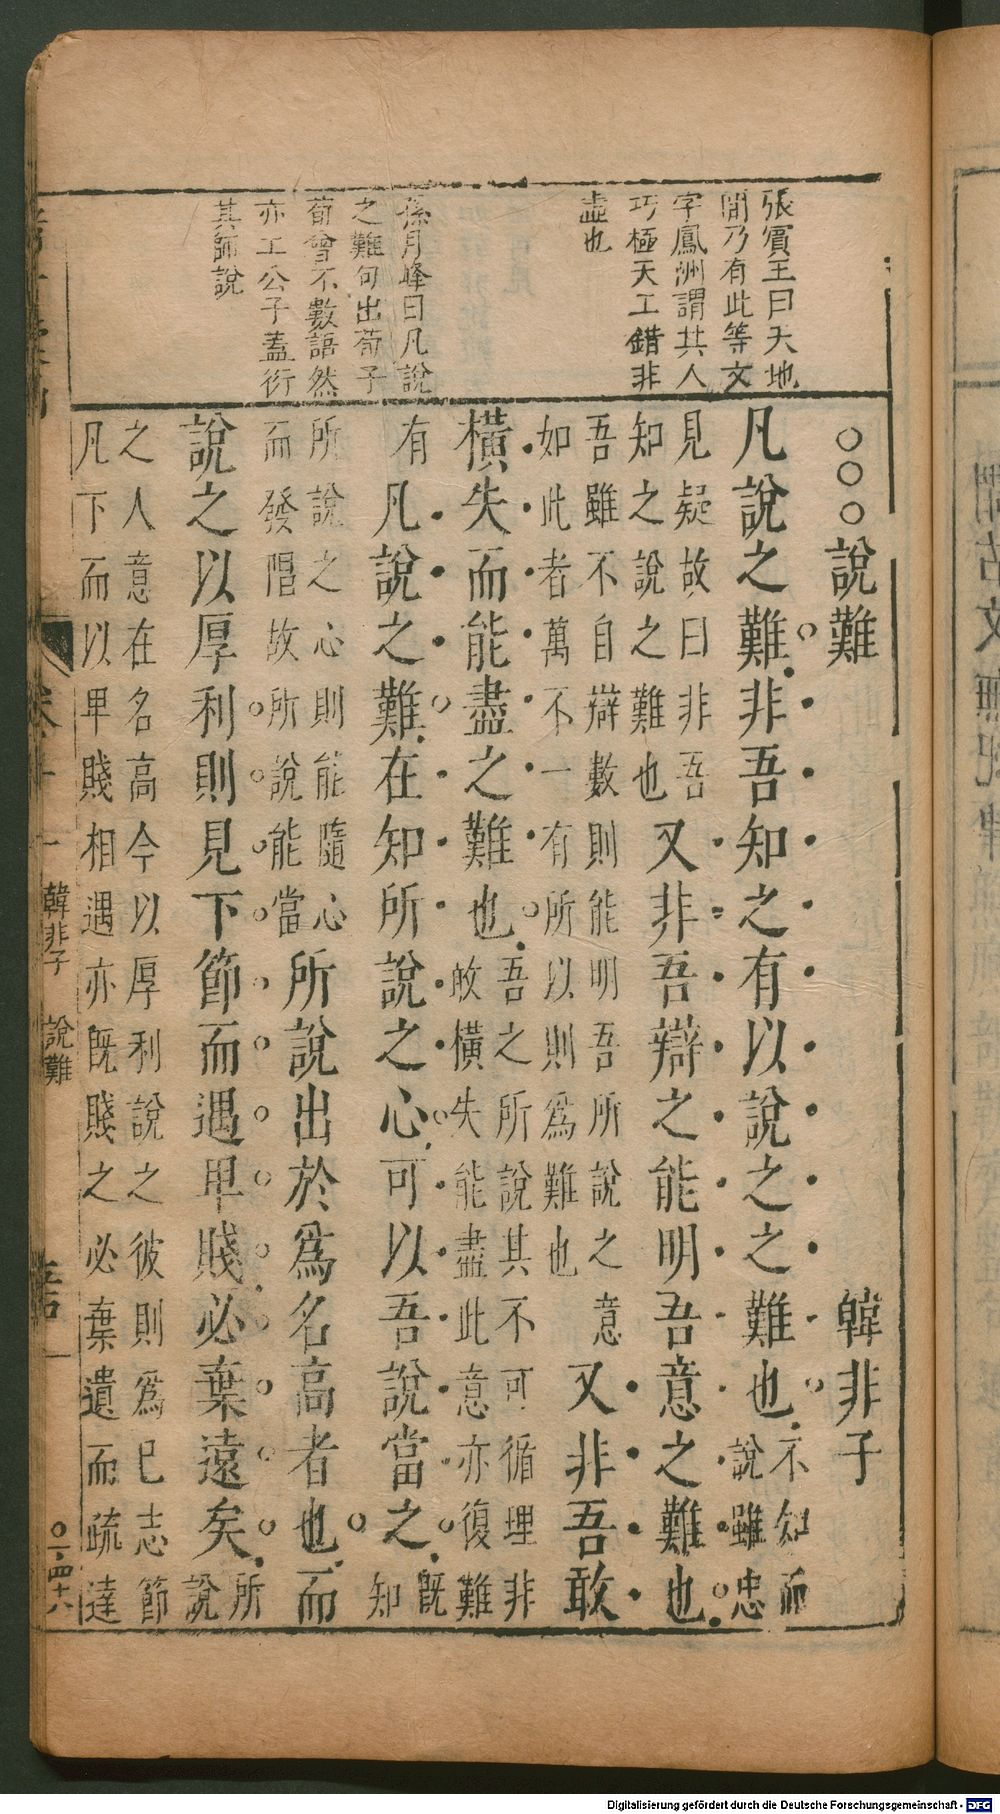 張賓王曰天地
間乃有此等文
字鳳洲謂其人
巧極天工錯非
虛也
孫月峰曰凡說
之難句出荀子
荀會不數語然
亦工公子蓋衍
其師說
○○○說難 韓非子
凡說之難非吾知之有以說之之難也不知而
說雖忠
見疑故曰非吾
知之說之難也又非吾辯之能明吾意之難也
吾雖不自辯數則能明吾所說之意
如此者萬不一有所以則為難也又非吾敢
橫失而能盡之難也吾之所說其不可循理非
故橫失能盡此意亦復難
有凡說之難在知所說之心可以吾說當之既
知
所說之心則能隨心
而發唱故所說能當所說出於為名高者也而
說之以厚利則見下節而遇卑賤必棄遠矣所
說
之人意在名高今以厚利說之彼則為已志節
凡下而以卑賤相遇亦既賤之必棄遺而疏達
韓非子 說難
○一·四十六
Digitalisierung gefördert durch die Deutsche Forschungsgemeinschaft - DFG